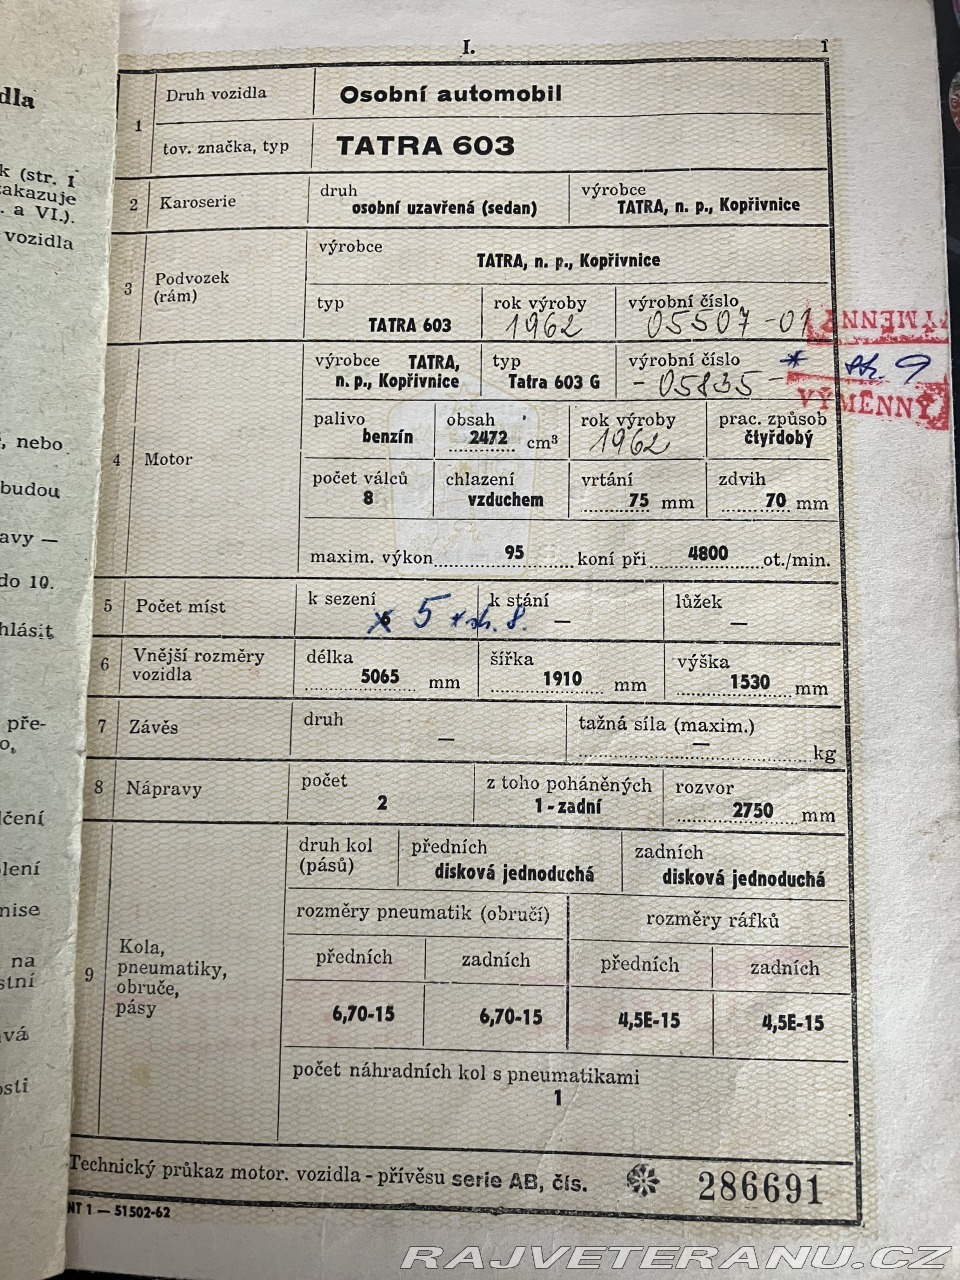 I.
1
dla
k (str. I
zakazuje
. a VI.).
vozidla
, nebo
budou
avy —
do 10.
hlásit
pře-
o,
čení
lení
mise
na
stní
vá
osti
1
Druh vozidla
Osobní automobil
tov. značka, typ
TATRA 603
2
Karoserie
druh
osobní uzavřená (sedan)
výrobce
TATRA, n. p., Kopřivnice
3
Podvozek
(rám)
výrobce
TATRA, n. p., Kopřivnice
typ
TATRA 603
rok výroby
1962
výrobní číslo
05507-01
VÝMĚNNÝ
4
Motor
výrobce TATRA,
n. p., Kopřivnice
typ
Tatra 603 G
výrobní číslo
-05835-
* str. 9
VÝMĚNNÝ
palivo
benzín
obsah
2472 cm³
rok výroby
1962
prac. způsob
čtyřdobý
počet válců
8
chlazení
vzduchem
vrtání
75 mm
zdvih
70 mm
maxim. výkon 95 koní při 4800 ot./min.
5
Počet míst
k sezení
6 5 * str. 8.
k stání
—
lůžek
—
6
Vnější rozměry
vozidla
délka
5065 mm
šířka
1910 mm
výška
1530 mm
7
Závěs
druh
—
tažná síla (maxim.)
— kg
8
Nápravy
počet
2
z toho poháněných
1 - zadní
rozvor
2750 mm
9
Kola,
pneumatiky,
obruče,
pásy
druh kol
(pásů)
předních
disková jednoduchá
zadních
disková jednoduchá
rozměry pneumatik (obručí)
rozměry ráfků
předních
zadních
předních
zadních
6,70-15
6,70-15
4,5E-15
4,5E-15
počet náhradních kol s pneumatikami
1
Technický průkaz motor. vozidla - přívěsu serie AB, čís. 286691
NT 1 — 51502-62
RAJVETERANU.CZ